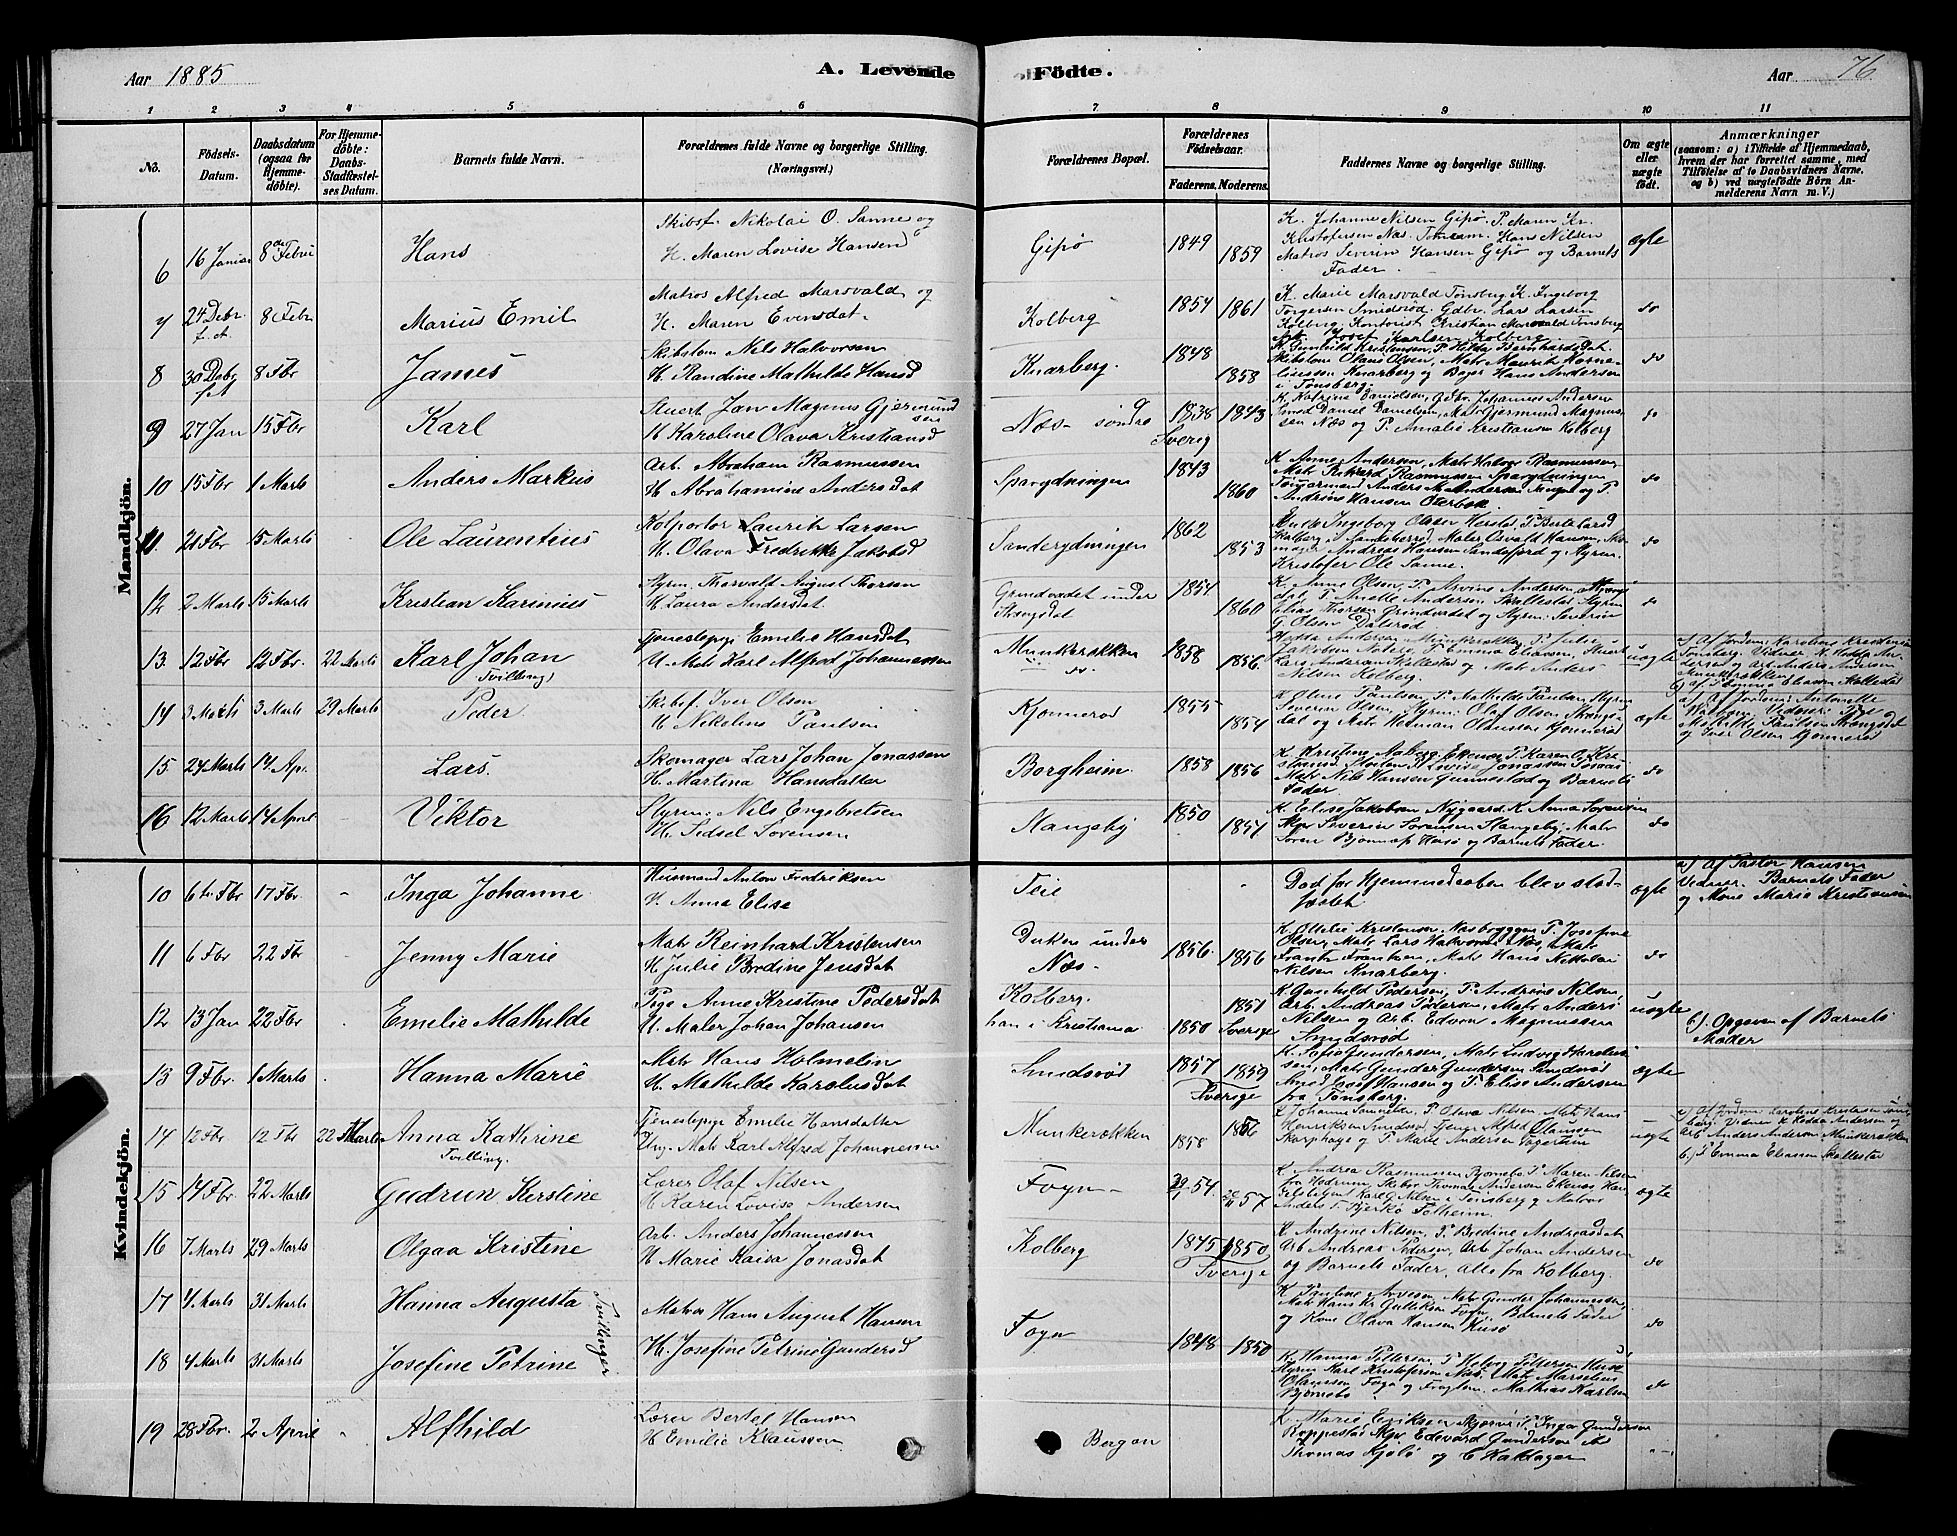 Aar 1885
A. Levende
Födte.
Aar 76
1 2 3 4 5 6 7 8 9 10 11
No.
Födsels-Datum.
Daabsdatum (ogsaa for Hjemme-döbte).
For Hjemme-döbte: Daabs-Stadfæstel-ses Datum.
Barnets fulde Navn.
Forældrenes fulde Navne og borgerlige Stilling. (Næringsvei.)
Forældrenes Bopæl.
Forældrenes Födselsaar.
Faderens. Moderens.
Faddernes Navne og borgerlige Stilling.
Om ægte eller uægte født.
Anmærkninger
(saasom: a) i Tilfælde af Hjemmedaab, hvem der har forrettet samme, med Tilföielse af to Daabsvidners Navne. og b) ved uægtefödte Börn An-melderens Navn m. V.)
Mandkjön.
6 16 Januar 8de Febru Hans
Skibsf. Nikolai O. Sanne og
H. Maren Lovise Hansen
Gipø 1849 1859
K. Johanne Nilsen Gipø. P. Maren Kr.
Kristofersen Næs. Hans Nilsen
Matros Severin Hansen Gipø og Barnets
Fader.
ægte
7 24 Debr. f.A. 8 Febr Marius Emil
Matros Alfred Marsvald og
H. Maren Evensdat.
Kolberg 1854 1861
K. Marie Marsvald Tønsberg K. Ingeborg
Torgersen Smidsrød. Gdbr. Lars Larsen
Kolberg, Kontorist Kristian Marsvald Tønsberg
Josef Karlsen Kolberg
do
8 30 Debr f.A 8 Fbr James
Skibstøm Nils Halvorsen
H. Randine Mathilde Hansd
Knarberg. 1848 1858
K. Gunhild Kristensen, P. Hilda Bernhardsdat.
Skibstøm Olaus Olsen, Matr Mauritz
Knarberg og Hans Andersen
i Tønsberg.
do
9 27 Jan 15 Fbr Karl
Stuert Jan Magnus Gjermund
sen
H Karoline Olava Kristiansd
Næs søndre 1838 Sverig 1843
K. Katrine Danielsen, Gdbr. Johannes Andersen
Smed Daniel Danielsen, Matr Gjermund Magnus-
sen Næs og P. Amalie Kristiansen Kolberg
do
10 15 Fbr 1 Marts Anders Markus
Arb. Abraham Rasmussen
H Abrahamine Andersdat
Sparydningen 1843 1860
K Anne Andersen, Matr Halvor Rasmussen,
Matr Rikard Rasmussen Sparydningen
Anders M. Andersen og P.
Andrine Hansen Østerbøk
do
11. 21 Fbr 15 Marts Ole Laurentius
Kolportør Laurits Larsen
H. Olava Fredrikke Jakobsd
Sanderydningen 1862 1853
Ingeborg Olsen Herstø, P. Berte Larsd
Kolberg Maler Osvald Hansen, Sko-
mager Andreas Hansen Sandefjord og Styrm.
Kristofer Ole Sanne.
do
12 2 Marts 15 Marts Kristian Karinius
Styrm. Thorvald August Thorsen
H Laura Andersdat.
Grindvædet under
1854 1860
K. Anne Olsen, P. Alvine Andersen
P. Anette Andersen Skallestad Styrm
Elias Thorsen Grindvædet og Styrm. Severin
G. Olsen Dalsrød
do
13. 12 Fbr 12 Fbr. 22 Marts Karl Johan
Tvilling)
Tjenestepige Emilie Hansdat
U. Matr Karl Alfred Johannessen
Munkerøkken
do
1858 1856.
Hedda Andersen Munkerøkken P. Julie
Jakobsen P. Emma Eliassen, Stuert
Lars Andersen Skallestad og Matr Anders
Nilsen Kolberg.
uægte
a) Af Jordem. Karoline Kristensen
Tønsberg. Vidner K. Hedda An-
dersen og Arb. Anders Andersen
Munkerøkken
b) af P. Emma Eliassen Skallestad
14 3 Marts 3 Marts 29 Marts Peder
Skibsf. Iver Olsen
H Nikoline Paulsen
Kjønnerød 1855 1854
K Oline Paulsen, P. Mathilde Paulsen, Styrm
Severin Olsen, Styrm. Olaf Olsen
dal og Matr Herman Olaussen Kjønnerød
ægte
a) Af Jordem. Antonette
Vidner: Pige
Mathilde Paulsen
og Iver Olsen Kjønnerød
15. 24 Marts 14 Ap. Lars.
Skomager Lars Johan Jonassen
H. Martina Hansdatter
Borgheim. 1858 1856
K. Kristine Aaberg, Ekenes, P. Karen O.
Horten, P. Lovise Jonassen
Matr Nils Hansen Gunnestad og Barnets
Fader.
do
16 12 Marts 14 April Viktor
Styrm. Nils Engebretsen
H. Sidsel Sørensen
1850 1857
K. Elise Jakobsen Nygaard. K. Anna Sørensen
Skpr Severin Sørensen Matr
Søren Husø og Barnets Fader.
do
Kvindekjön.
10 6te Fbr 17 Fbr. Inga Johanne
Husmand Anton Fredriksen
H. Anna Elise
Teie
Død før Hjemmedaaben blev stad-
fæstet
ægte
a) Af Pastor Hansen
Vidner. Barnets Fader
og Kone Marie Kristiansen
11 6 Fbr 22 Fbr Jenny Marie
Matr Reinhard Kristensen
H Julie Bredine Jensdat
Duken under
Næs.
1856. 1856
K. Ottilie Kristensen, Næsbryggen P. Josefine
Olsen, Matr Lars Halvorsen Næs, Matr
Frantz Frantzen, Matr Hans Nikolai
Nilsen Knarberg.
do
12 13 Jan 22 Fbr Emelie Mathilde
Pige Anne Kristine Pedersdat
U. Maler Johan Johansen
Kolberg.
han i Kristiania
1850 1851 Sverige
K Gunhild Pedersen, P. Andrine Nilsen,
Arb. Andreas Pedersen, Matr Anders
Nilsen og Arb. Edvin Magnussen
Smidsrød
uægte
b). Opgiven af Barnets
Moder
13 9 Fbr. 1 Marts Hanna Marie
Matr Hans Holmelin
H. Mathilde Karolusdat
Smidsrød 1857 1859 Sverige
K. Sofie Gundersen, Matr Ludvig Karolus-
sen, Matr Gunder Gundersen Smidsrød
Smed Josef Hansen og P. Elise Andersen
fra Tønsberg.
ægte
14 12 Fbr 12 Fbr 22 Marts Anna Kathrine
Tvilling.
Tjenestepige Emilie Hansdatter
Ung. Matr Karl Alfred Johannessen
Munkerøkken 1858 1856
K Johanne P. Olava Nilsen, Matr Hans
Henriksen Smidsrød, Alfred Olaussen
Skarphage og P. Marie Andersen
uægte
a) Af Jordem. Karoline Kristensen Tøns-
berg. Vidner K Hedda Andersen og
Arb Anders Andersen Munkerøkken
b.) P Emma Eliassen Skallestad
15 14 Fbr 22 Marts Gudrun Kerstine
Lærer Olaf Nilsen
H Karen Lovise Andersen
Føyn
54. 57
K. Andrea Rasmussen Bjørnebo P. Maren Nilsen
fra Hedrum, Skibsr Thomas Andersen Ekenes Han-
delsbetjent Karl G Nilsen i Tønsberg og Matros
Anders T. Bjerkø Tolheim.
ægte
16 7 Marts 29 Marts Olgaa Kristine
Arb. Anders Johannessen
H Marie Kaisa Jonasdat
Kolberg 1845 1850 Sverige
K Andrine Nilsen, P. Bredine Andreasdat
Arb Andreas Pedersen, Arb Johan Andersen
og Barnets Fader, alle fra Kolberg.
do
17 4 Marts 31 Marts Hanna Augusta
18 4 Marts 31 Marts Josefine Petrine
Tvillinger
Matros Hans August Hansen
H. Josefine Petrine Gundersd
Føyn 1848 1850
K Pauline Arvesen, Matr Gunder Johannessen,
Matr Hans Kr Gulliksen Føyn, Barnets Fader
og Kone Olava Hansen Husø
do
K. Hanna Pettersen, P. Helvig Pettersen Husø
Styrm Karl Kristofersen Næs, Matr Marselius
Olaussen Føyn og Mathias Karlsen
Bjørnebo
do
19 28 Fbr. 2 April Alfhild
Lærer Bertel Hansen
H Emilie Klaussen
Bergan
K. Marie Eriksen P. Inga Gundersen
Roppestad, Skpr Edvard Gundersen
Thomas Kjølø og E Haldager